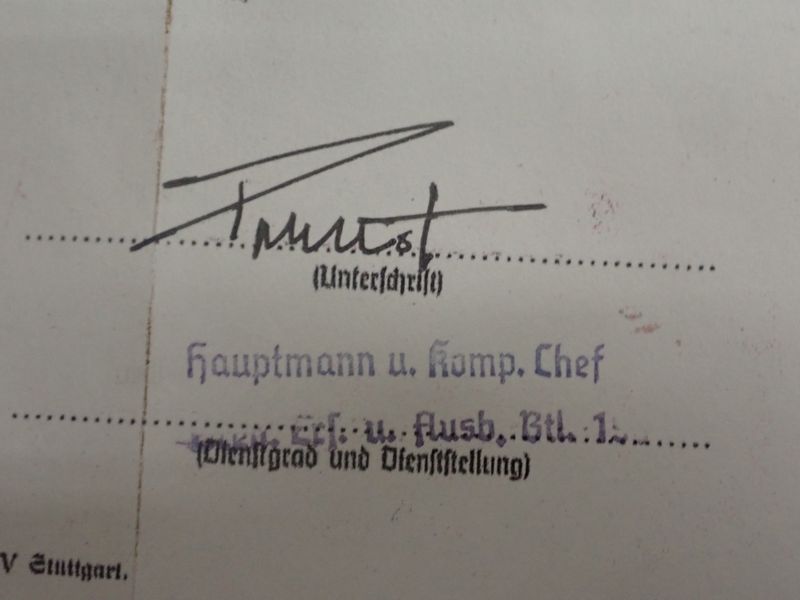 (Unterschrift)
Hauptmann u. Komp. Chef
Ers. u. Ausb. Btl.
(Dienstgrad und Dienststellung)
V Stuttgart.